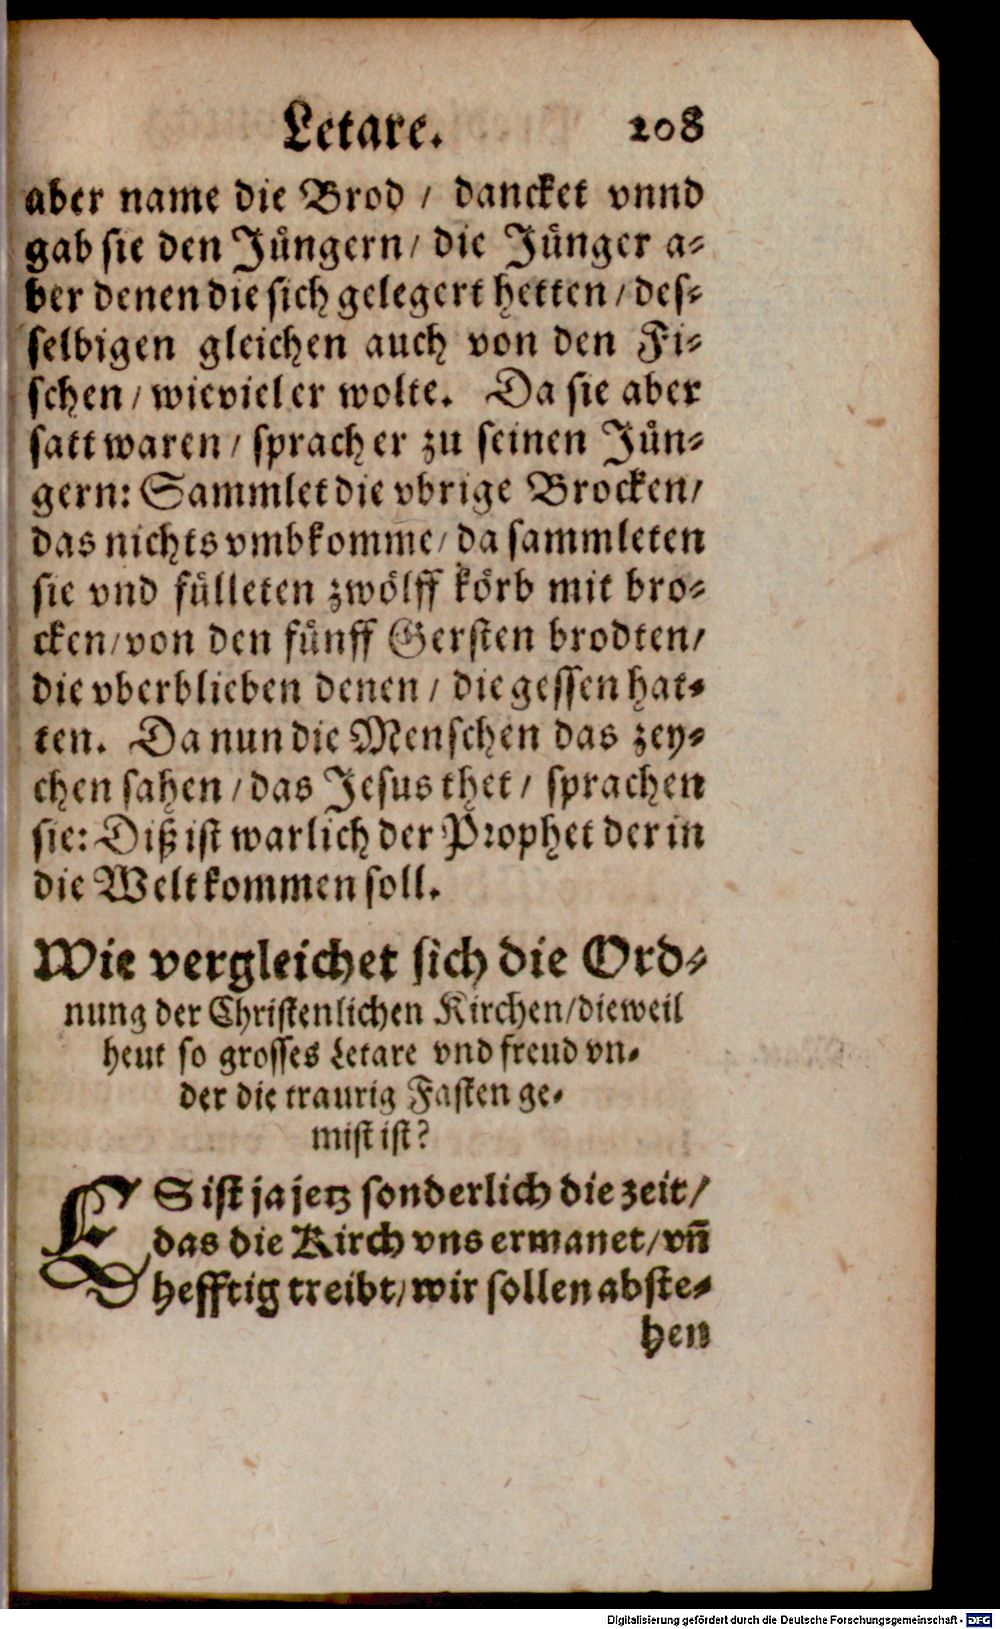 Letare. 208
aber name die Brod / dancket vnnd
gab sie den Jüngern / die Jünger a-
ber denen die sich gelegert hetten / des-
selbigen gleichen auch von den Fi-
schen / wieviel er wolte. Da sie aber
satt waren / sprach er zu seinen Jün-
gern: Sammlet die vbrige Brocken /
das nichts vmbkomme / da sammleten
sie vnd fülleten zwölff körb mit bro-
cken / von den fünff Gersten brodten /
die vberblieben denen / die gessen hat-
ten. Da nun die Menschen das zey-
chen sahen / das Jesus thet / sprachen
sie: Diß ist warlich der Prophet der in
die Welt kommen soll.
Wie vergleichet sich die Ord-
nung der Christenlichen Kirchen / dieweil
heut so grosses Letare vnd freud vn-
der die traurig Fasten ge-
mist ist?
ES ist ja jetz sonderlich die zeit /
das die Kirch vns ermanet / vn̄
hefftig treibt / wir sollen abste-
hen
Digitalisierung gefördert durch die Deutsche Forschungsgemeinschaft - DFG